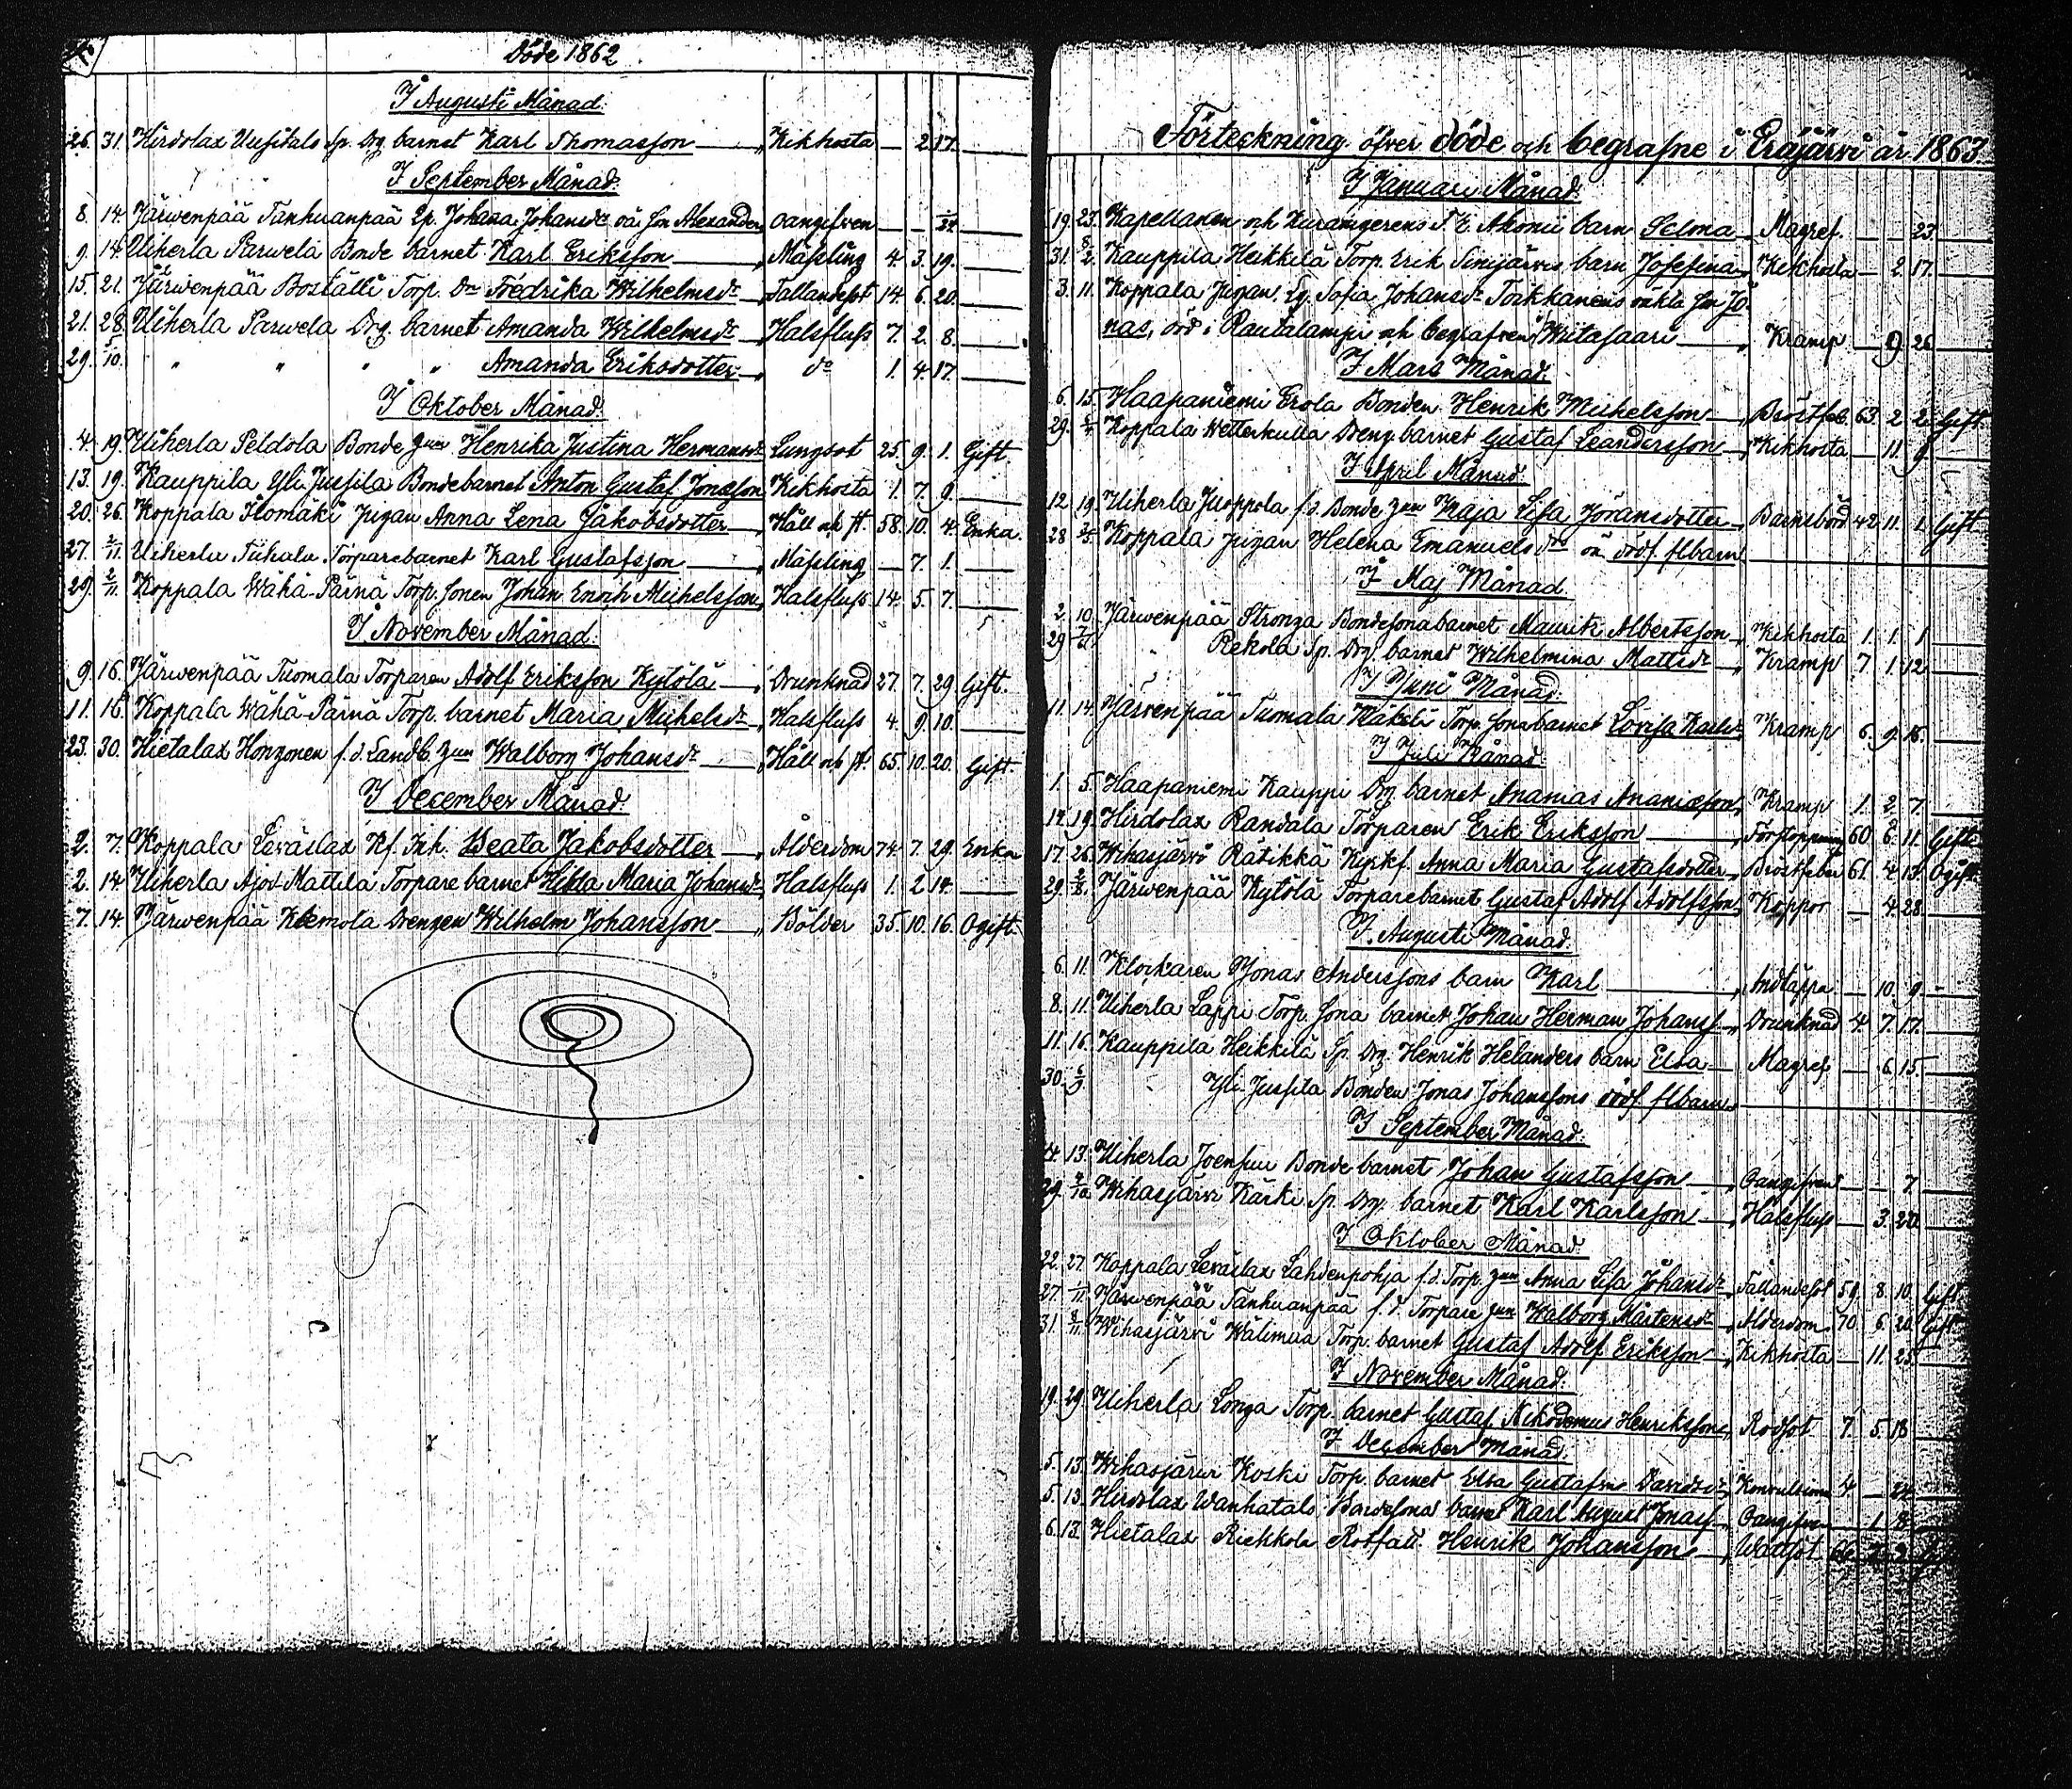 Döde 1862
I Augusti Månad.
26. 31. Hirdolax Uusitalo Sp. Drg. barnet Karl Thomasson Kikhosta — 2 17.
I September Månad.
8. 14. Järwenpää Tanhuanpää Ip. Johana Johansdr oä son Alexander oangifven — —
9. 14. Uiherla Parwela Bonde barnet Karl Eriksson Mäsling 4. 3. 19.
15. 21. Järwenpää Boställi Torp. Dr Fredrika Wilhelmsdr Fallandesot 14. 6. 20.
21. 28. Uiherla Parwela Drg. barnet Amanda Wilhelmsdr Halsfluss 7. 2. 8.
29. 5/10. " " " " Amanda Eriksdotter do 1. 4. 17.
I Oktober Månad.
4. 19. Uiherla Peldola Bonde hustrun Henrika Justina Hermansdr Lungsot 25. 9. 1. Gift.
13. 19. Kauppila Yli Jussila Bondebarnet Anton Gustaf Jonasson Kikhosta 1. 7. 9.
20. 26. Koppala Ilomäki Jngan Anna Lena Jakobsdotter Håll och st. 58. 10. 4. Enka.
27. 2/11. Uiherla Tiihala Torparebarnet Karl Gustafsson Mäsling — 7. 1.
29. 2/11. Koppala Wähä-Pärnä Torp. sonen Johan Enoch Michelsson Halsfluss 14. 5. 7.
I November Månad.
9. 16. Järwenpää Tuomala Torparen Adolf Eriksson Kytölä Drunknad 27. 7. 29. Gift.
11. 16. Koppala Wähä-Pärnä Torp. barnet Maria Michelsdr Halsfluss 4. 9. 10.
23. 30. Hietalax Honzonen f.d. Landb. hun Walborg Johansdr Håll och st. 65. 10. 20. Gift.
I December Månad.
2. 7. Koppala Leväslax Kf. Inh. Beata Jakobsdotter Ålderdom 74. 7. 29. Enka
2. 14. Uiherla Ajos-Mattila Torpare barnet Hilda Maria Johansdr Halsfluss 1. 2. 14.
7. 14. Järwenpää Klemola Drengen Wilhelm Johansson Bölder 35. 10. 16. Ogift.
Förteckning öfver döde och begrafne i Eräjärvi år 1863
I Januari Månad.
19. 23. Kapellanens och Kuramgerens F. E. Akonii barn Selma Magref. — — 23.
31. 8/2. Kauppila Heikkilä Torp. Erik Sinijärvis barn Josefina Kikhosta — 2. 17.
3. 11. Koppala Jngan Eg. Sofia Johansdr Toikkanens oäkta son Jo-
nas, död i Rautalampi och begrafven i Wiitasaari Kramp — 9 26
I Mars Månad.
6. 15. Haapaniemi Erola Bonden Henrik Michelsson Bröstfeb. 63. 2 2. Gift.
29. 6/4 Koppala Wetterkulla Dreng barnet Gustaf Leandersson Kikhosta — 11. 9
I April Månad.
12. 19. Uiherla Juoppola f.d. Bonde hun Kaja Lisa Jöransdotter Barnsbörd 42. 11. 1. Gift.
28 Koppala pigan Helena Emanuelsdrs oä dödf. flbarn
I Maj Månad.
2. 10. Järwenpää Stronga Bondesonabarnet Maurits Albertsson Kikhosta 1. 1. 1
29 Rekola Sp. Drg. barnet Wilhelmina Mattsdr Kramp 7. 1. 12.
I Juni Månad.
11. 14. Järvenpää Tuomala Mäkelä Torp. sonabarnet Lovisa Karlsdr Kramp 6. 9. 15.
I Juli Månad.
1. 5. Haapaniemi Kauppi Drg barnet Ananias Ananiasson Kramp 1. 2. 7.
14. 19. Hirdolax Randala Torparen Erik Eriksson Förstoppning 60. 6. 11. Gift.
17. 26. Wihasjärvi Rätikkä Kyrkf. Anna Maria Gustafsdotter Bröstfeber 61. 4 13. Ogift
29. 2/8. Järwenpää Kytölä Torparebarnet Gustaf Adolf Adolfsson Koppor — 4. 28.
I Augusti Månad.
6. 11. Klockaren Jonas Anderssons barn Karl Andtäppa — 10. 9.
8. 11. Uiherla Lappi Torp. sona barnet Johan Herman Johanss. Drunknad 4. 7. 17.
11. 16. Kauppila Heikkilä Sp. Drg. Henrik Helanders barn Elsa Magref. — 6. 15.
30. 6/9 Yli Jussila Bonden Jonas Johanssons dödf. flbarn
I September Månad.
4. 13. Uiherla Joensuu Bonde barnet Johan Gustafsson Oangifven — — 7
29. 4/10 Wihasjärvi Kärki Sp. Drg. barnet Karl Karlsson Halsfluss — 3. 20.
I Oktober Månad.
22. 27. Koppala Leväslax Lahdenpohja f.d. Torp hun Anna Lisa Johansdr Fallandesot 59. 8. 10. Gift.
27. 1/11. Järwenpää Tanhuanpää f.d. Torpare hun Walborg Mårtensdr Ålderdom 70. 6. 20. Gift
31. 8/11. Wihasjärvi Wälimaa Torp. barnet Gustaf Adolf Eriksson Kikhosta — 11. 25.
I November Månad.
19. 29. Uiherla Longa Torp. barnet Gustaf Nikodemus Henriksson Rödsot 7. 5. 18
I December Månad.
5. 13. Wihasjärvi Koski Torp. barnet Elsa Gustafva Davidsdr Konvulsioner 4. — 24.
5. 13. Hirdolax Wanhatalo Bondesona barnet Karl August Jonass. Oangifven — 1. 8.
6. 13. Hietalax Riekkola Rotfatt. Henrik Johansson Wattsot